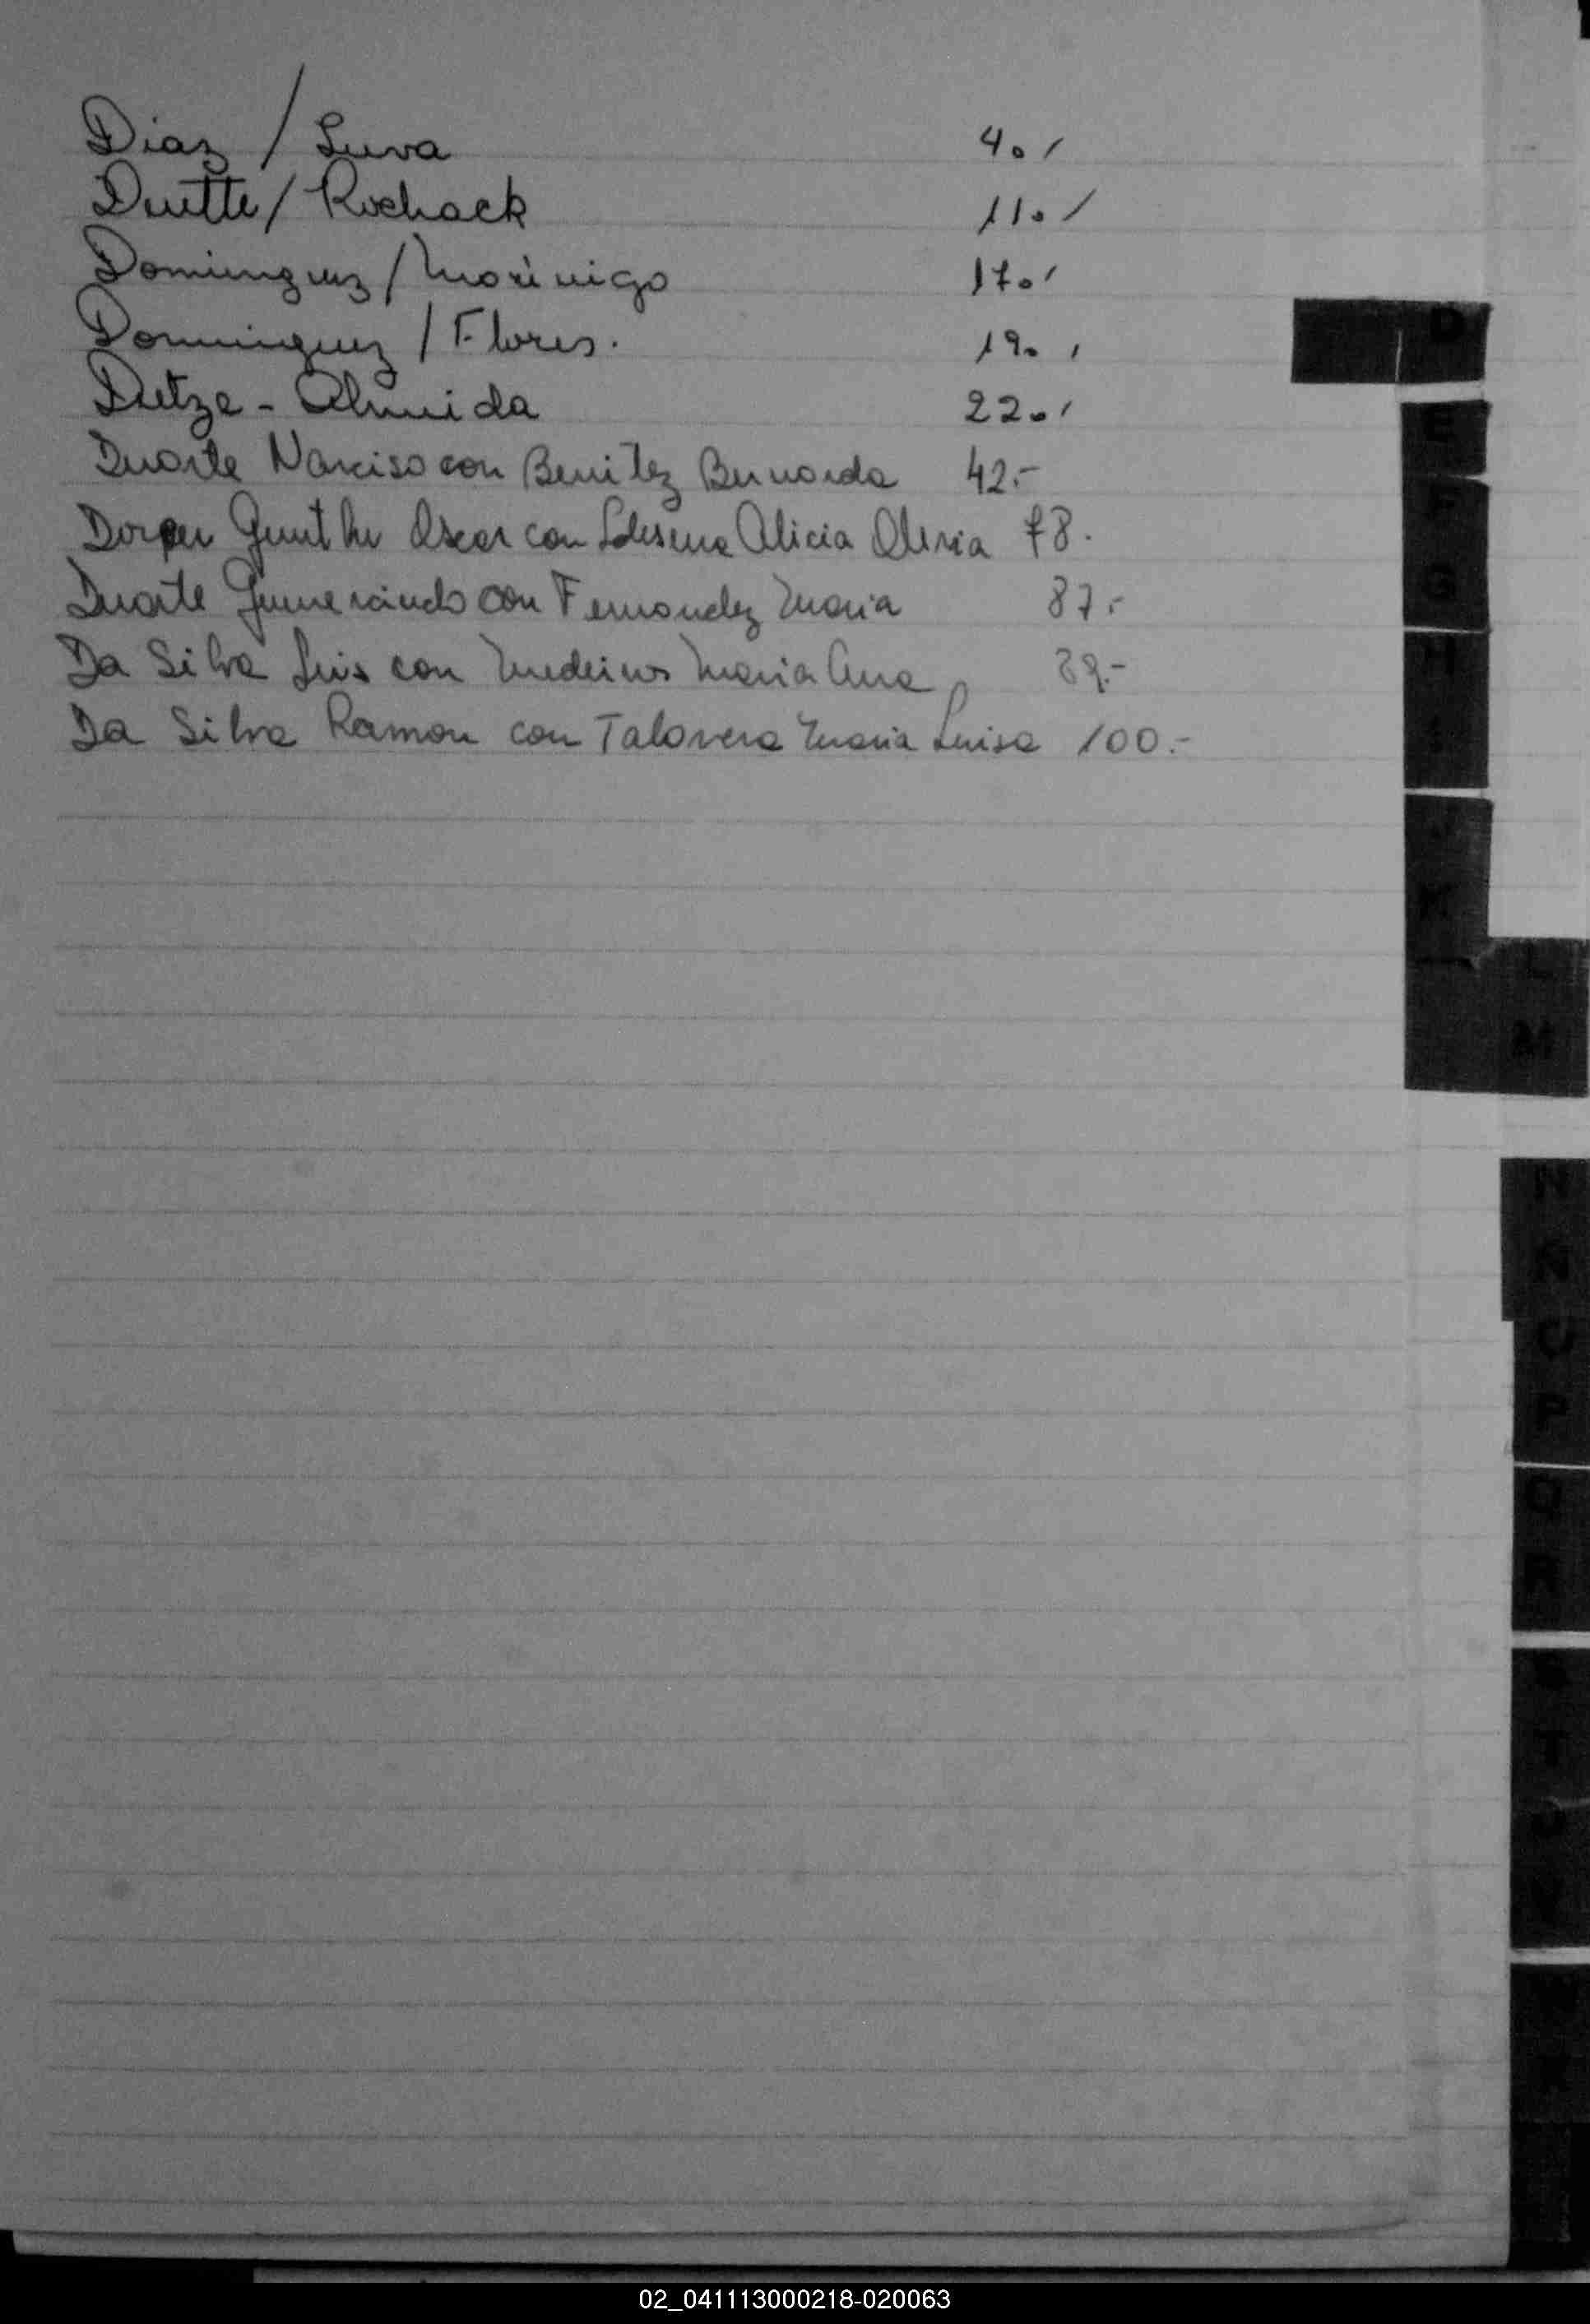 Diaz / Leiva 4./
Duette / Roschack 11./
Dominguez / Morinigo 17./
Dominguez / Flores. 19./
Dietze - Almeida 22./
Duarte Narciso con Benitez Bernarda 42.-
Gunther Oscar con Ledesma Alicia 78.
Duarte Gumercindo con Fernandez Maria 87.-
Da Silva Luis con Medeiros Maria Ana 89.-
Da Silva Ramon con Talavera Maria Luisa 100.-
D
E
F
G
H
I
K
L
M
N
Ñ
O
P
Q
R
S
T
02_041113000218-020063